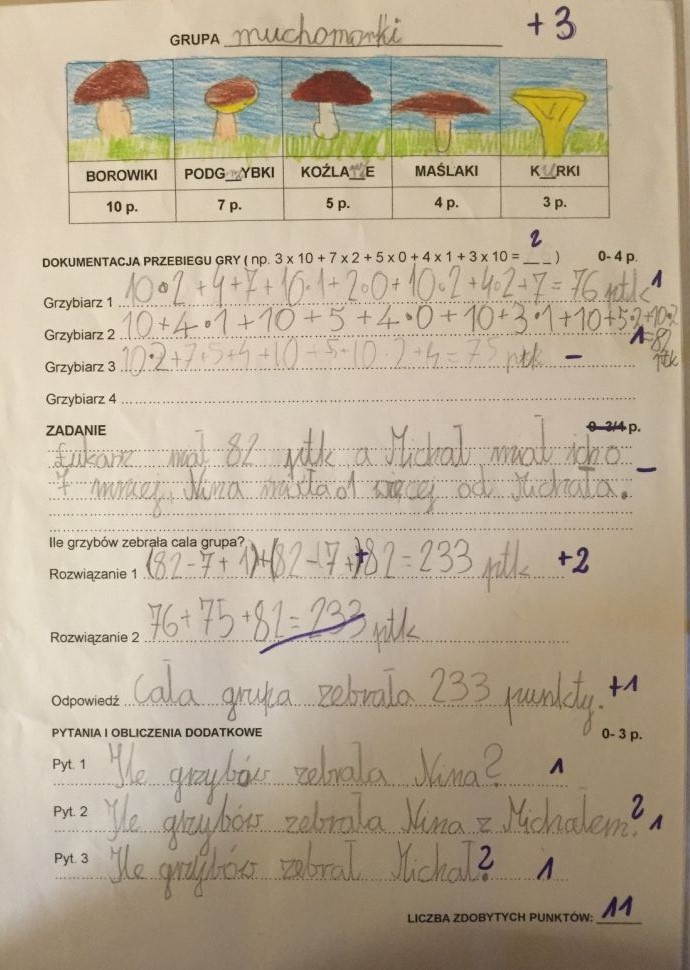 GRUPA muchomorki +3
BOROWIKI PODG_rz_YBKI KOŹLA_rz_E MAŚLAKI K_u_RKI
10 p. 7 p. 5 p. 4 p. 3 p.
2
DOKUMENTACJA PRZEBIEGU GRY ( np. 3 x 10 + 7 x 2 + 5 x 0 + 4 x 1 + 3 x 10 = _ _ _ ) 0- 4 p.
Grzybiarz 1 10•2 + 4 + 7 + 10•1 + 2•0 + 10•2 + 4•2 + 7 = 76 ptk 1
Grzybiarz 2 10 + 4•1 + 10 + 5 + 4•0 + 10 + 3•1 + 10 + 5•2 + 10•2
1 = 82 ptk
Grzybiarz 3 10•2 + 7 + 5 + 4 + 10 + 5 + 10•2 + 4 = 75 ptk –
Grzybiarz 4
ZADANIE 0-3/4 p.
Łukasz miał 82 ptk a Michał miał ich o –
7 mniej, Nina miała o 1 więcej od Michała.
Ile grzybów zebrała cala grupa?
Rozwiązanie 1 (82-7+1)+(82-7)+82=233 ptk +2
Rozwiązanie 2 76+75+82=233 ptk
Odpowiedź Cała grupa zebrała 233 punkty. +1
PYTANIA I OBLICZENIA DODATKOWE 0- 3 p.
Pyt. 1 Ile grzybów zebrała Nina? 1
Pyt. 2 Ile grzybów zebrała Nina z Michałem? 1
Pyt. 3 Ile grzybów zebrał Michał? 1
LICZBA ZDOBYTYCH PUNKTÓW: 11